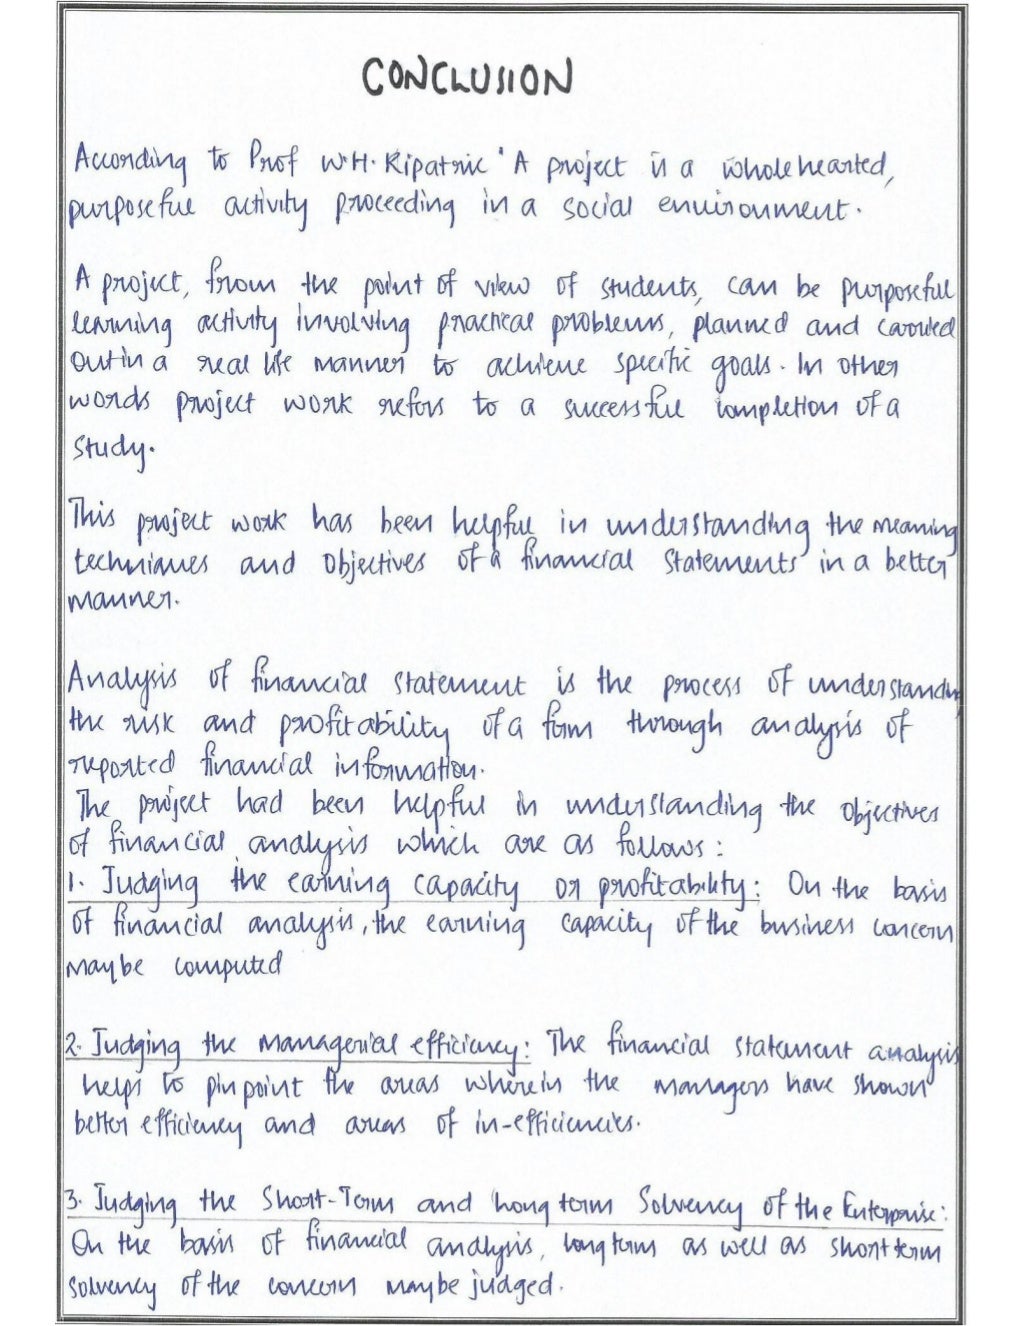 CONCLUSION
According to Prof W.H. Kipatric 'A project is a whole hearted,
purposeful activity proceeding in a social environment.
A project, from the point of view of students, can be purposeful
learning activity involving practical problems, planned and carried
out in a real life manner to achieve specific goals. In other
words project work refers to a successful completion of a
study.
This project work has been helpful in understanding the meaning
techniques and objectives of a financial statements in a better
manner.
Analysis of financial statement is the process of understanding
the risk and profitability of a form through analysis of
reported financial information.
The project had been helpful in understanding the objectives
of financial analysis which are as follows:
1. Judging the earning capacity or profitability: On the basis
of financial analysis, the earning capacity of the business concern
maybe computed
2. Judging the managerial efficiency: The financial statement analysis
helps to pin point the areas wherein the managers have shown
better efficiency and areas of in-efficiencies.
3. Judging the Short-Term and long term Solvency of the Enterprise:
On the basis of financial analysis, long term as well as short term
solvency of the concern maybe judged.